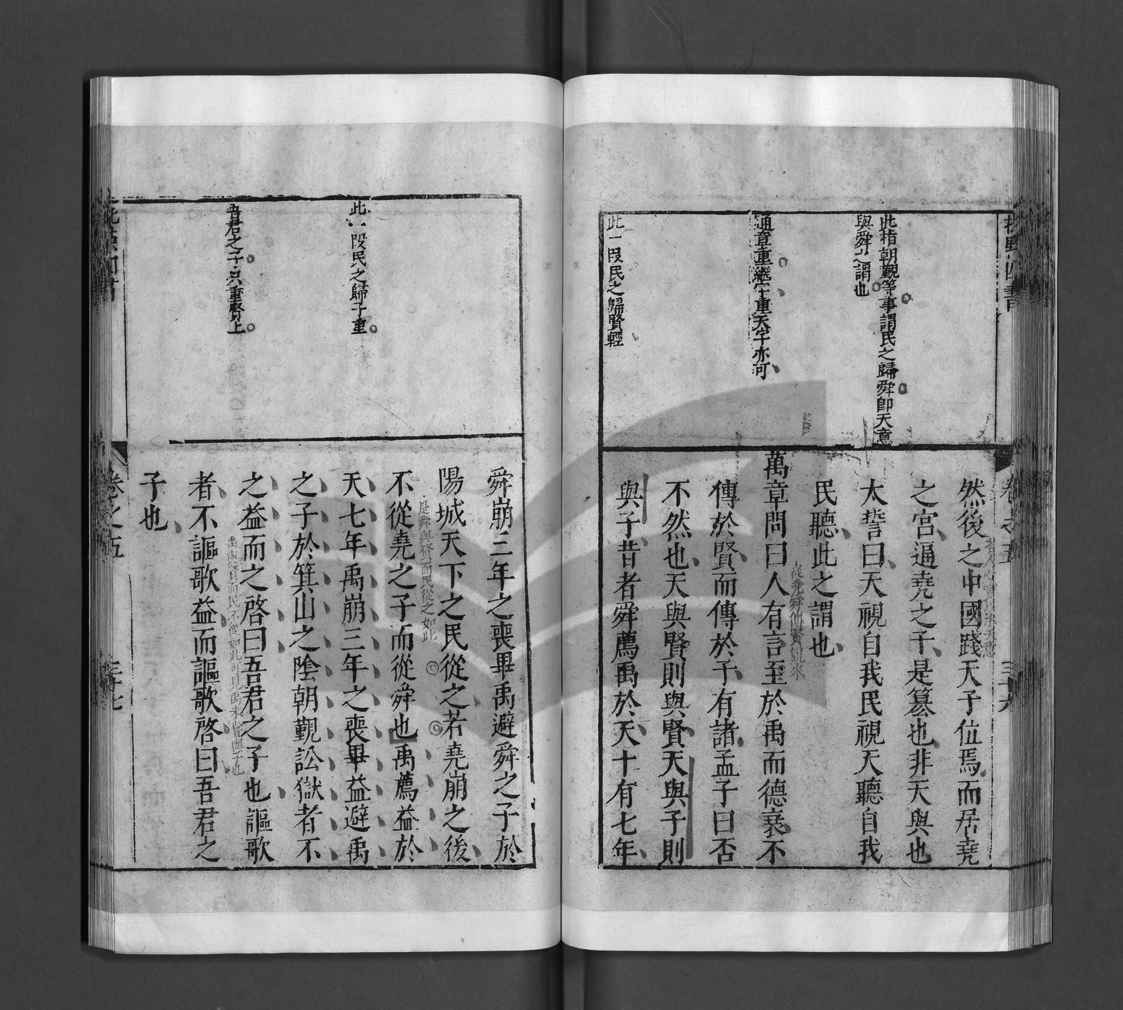 此指朝覲等事謂民之歸舜即天意
與舜之謂也
通章重繼字重天字亦可
此一段民之歸賢輕
然後之中國踐天子位焉而居堯
之宮逼堯之子是篡也非天與也
太誓曰天視自我民視天聽自我
民聽此之謂也
從堯舜傳賢說來
萬章問曰人有言至於禹而德衰不
傳於賢而傳於子有諸孟子曰否
不然也天與賢則與賢天與子則
與子昔者舜薦禹於天十有七年
此一段民之歸子重
吾君之子只重賢上
舜崩三年之喪畢禹避舜之子於
陽城天下之民從之若堯崩之後
是舜與賢而民從之如此
不從堯之子而從舜也禹薦益於
天七年禹崩三年之喪畢益避禹
之子於箕山之陰朝覲訟獄者不
之益而之啓曰吾君之子也謳歌
者不謳歌益而謳歌啓曰吾君之
子也
卷之五
三十七